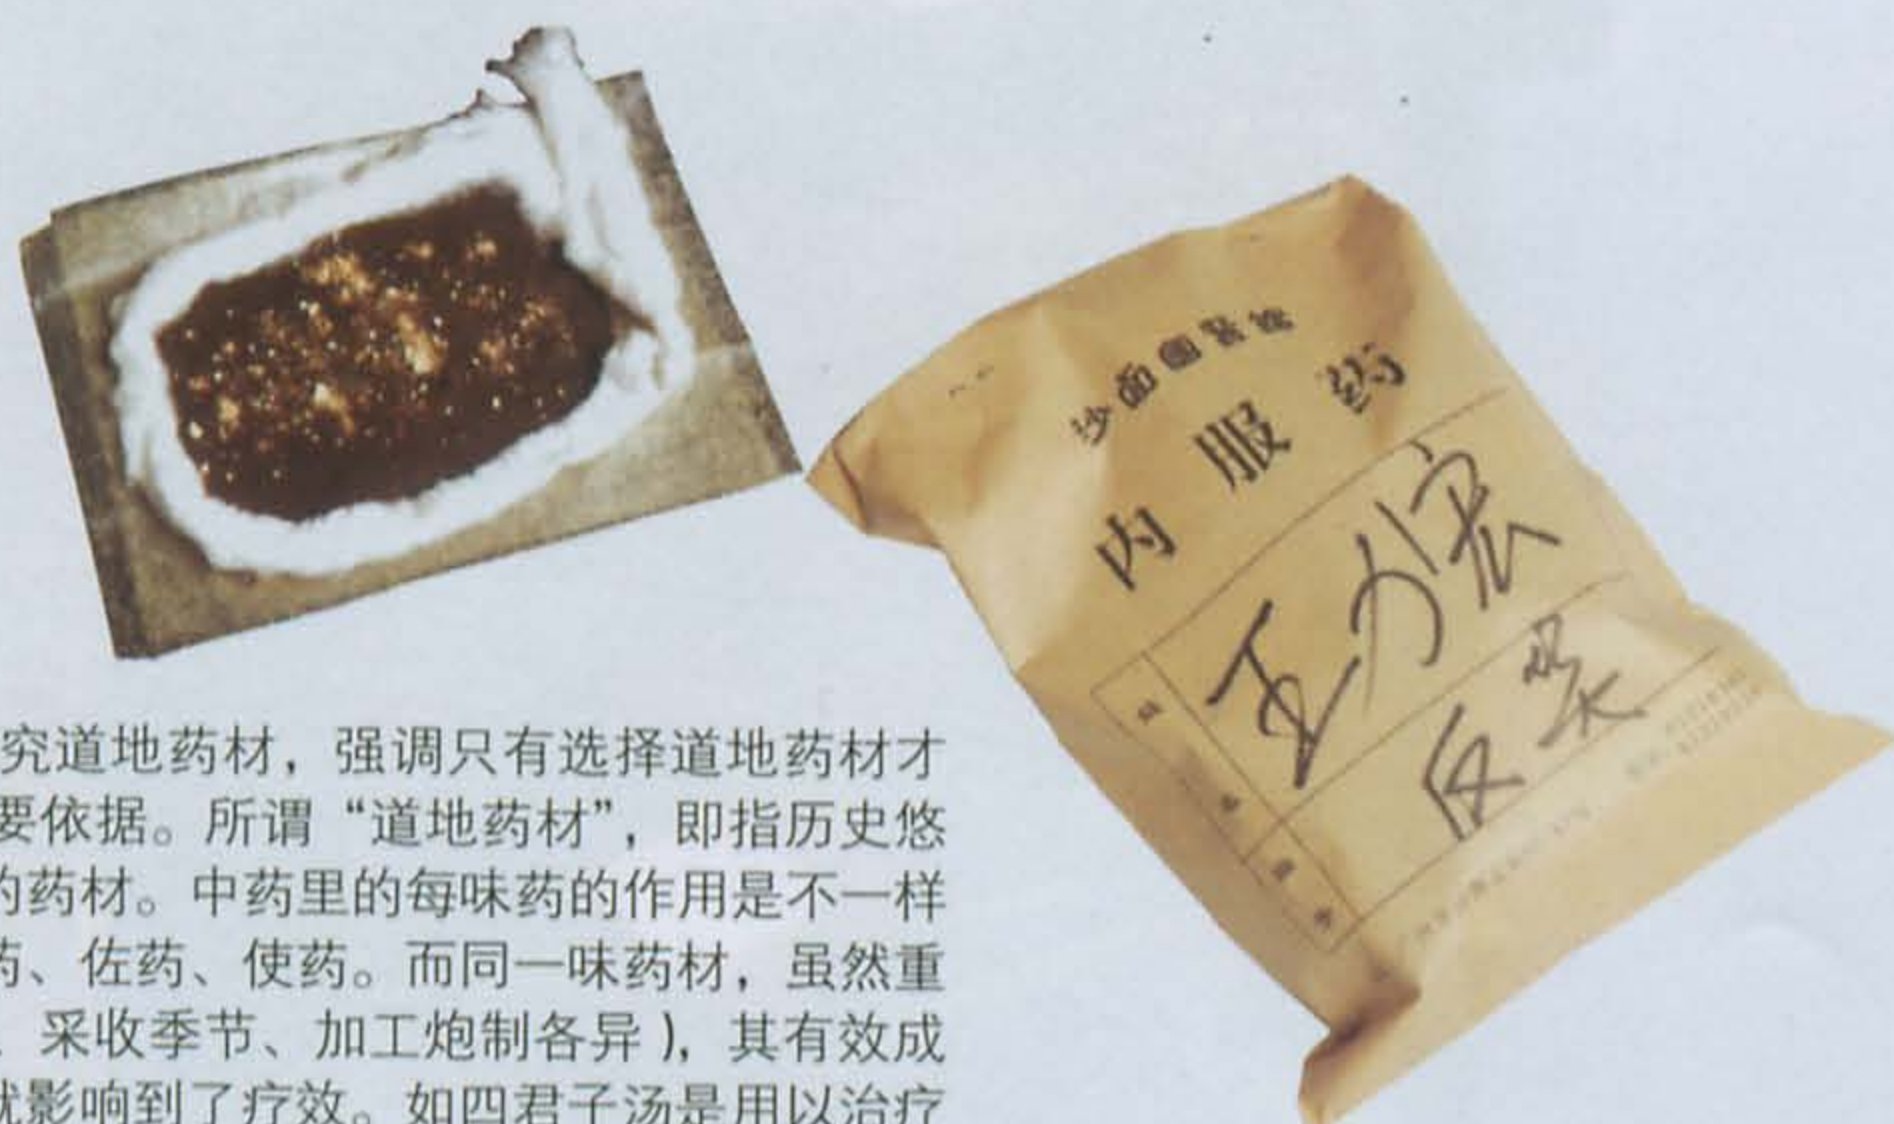 内服药
王力宏
究道地药材，强调只有选择道地药材才
要依据。所谓“道地药材”，即指历史悠
的药材。中药里的每味药的作用是不一样
药、佐药、使药。而同一味药材，虽然重
、采收季节、加工炮制各异），其有效成
就影响到了疗效。如四君子汤是用以治疗